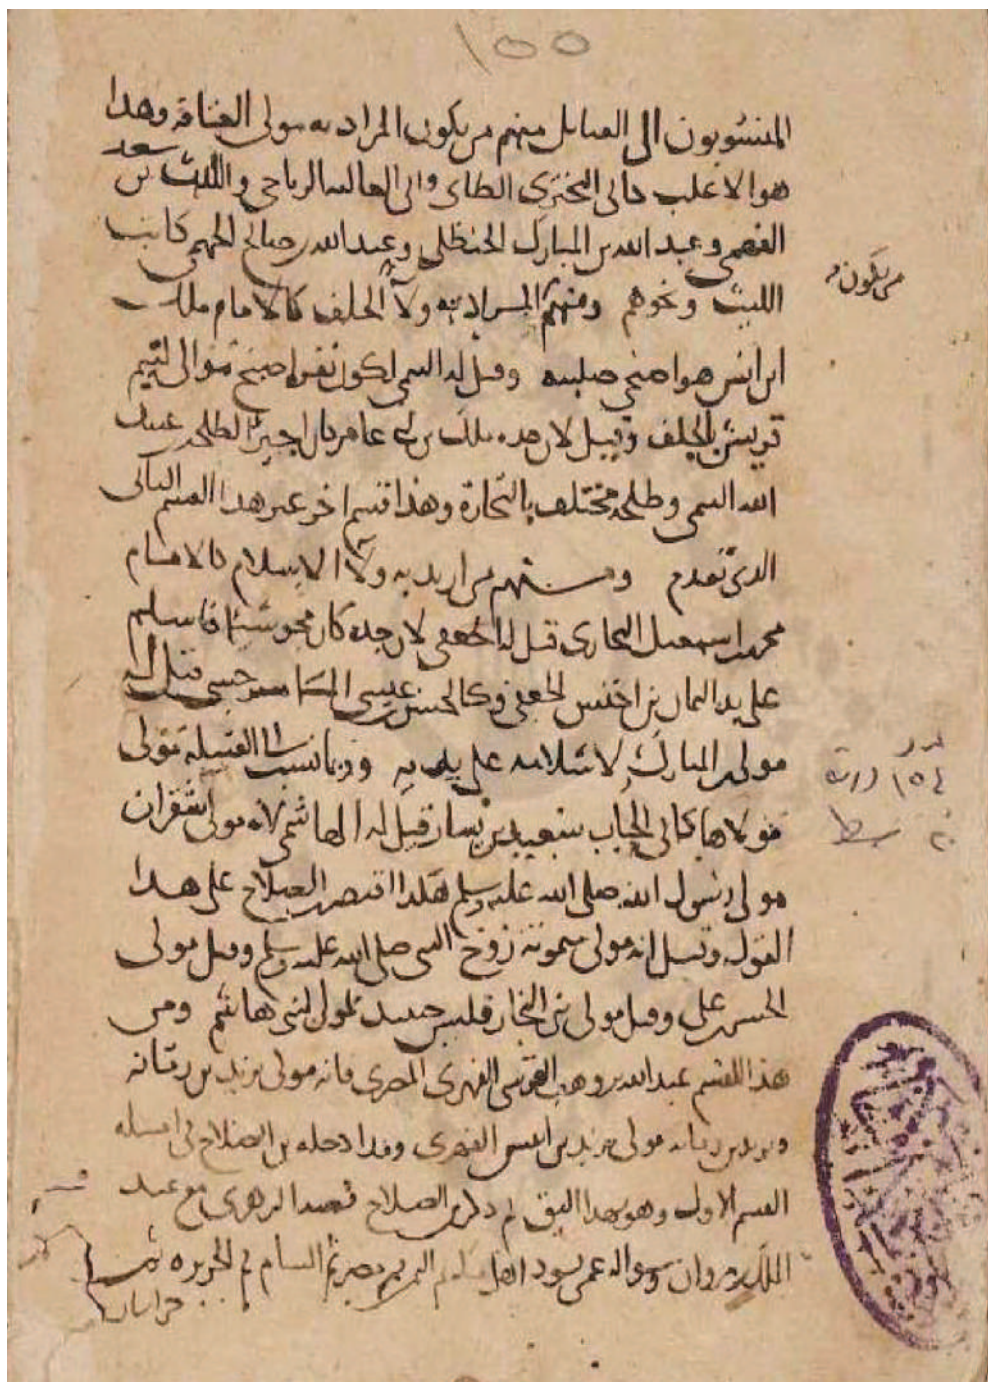 ١٥٥
المنسوبون الى القبايل منهم من يكون المراد به مولى العتاقة وهذا
هو الاغلب كابى البخترى الطاى وابى العالية الرياحى والليث بن سعد
الفهمى وعبد الله بن المبارك الحنظلى وعبد الله بن صالح الجهمى كاتب
الليث ونحوهم ومنهم المراد به ولآ الحلف كالامام ملك
من يكون
ابن انس هو اصبحى صليبه وقيل له التيمى لكون نفره اصبح موالى لتيم
قريش بالحلف وقيل لان جده ملك بن ابى عامر كان اجيرا لطلحه بن عبيد
الله التيمى وطلحه مختلف بالتجارة وهذا قسم اخر غير هذا القسم الثانى
الذى تقدم ومنهم من اريد به ولآ الاسلام كالامام
محمد بن اسمعيل البخارى قيل له الجعفى لان جده كان مجوسيا فاسلم
على يد اليمان بن اخنس الجعفى وكالحسن بن عيسى الماسرجسى قيل له
مولى بن المبارك لاسلامه على يديه وربما نسب الى القبيلة مولى
مولاها كابى الحباب سعيد بن يسار قيل له الهاشمى لانه مولى لشقران
مولى رسول الله صلى الله عليه وسلم هكذا اقتصر بن الصلاح على هذا
القول وقيل انه مولى ميمونة زوج النبى صلى الله عليه وسلم وقيل مولى
الحسن بن على وقيل مولى بنى النجار فليس حينيذ بمولى لبنى هاشم ومن
هذا القسم عبد الله بن وهب القرشى الفهرى المصرى فانه مولى يزيد بن رمانه
ويزيد بن رمانه مولى يزيد بن انيس الفهرى وقد ادخله بن الصلاح فى امثله
القسم الاول وهو بهذا اليق ثم ذكر بن الصلاح قصه الزهرى مع عبد
الملك بن مروان وسواله عمن يسود اهل مكه ثم اليمن ثم مصر ثم الشام ثم الجزيره ثم
خراسان